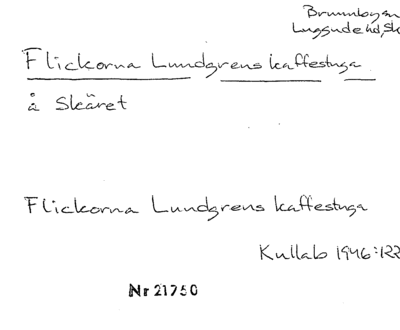 Brunnbysn
Luggude hd, Sk
Flickorna Lundgrens kaffestuga
å Skäret
Flickorna Lundgrens kaffestuga
Kullab 1946:122
Nr 21750